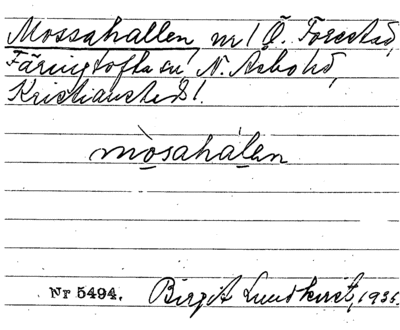 Mossahallen, nr 1 Ö. Forestad,
Färingtofta sn, N. Åsbo hd,
Kristianstads l.
mòsahálen
Nr 5494. Birgit Lundkvist, 1935.